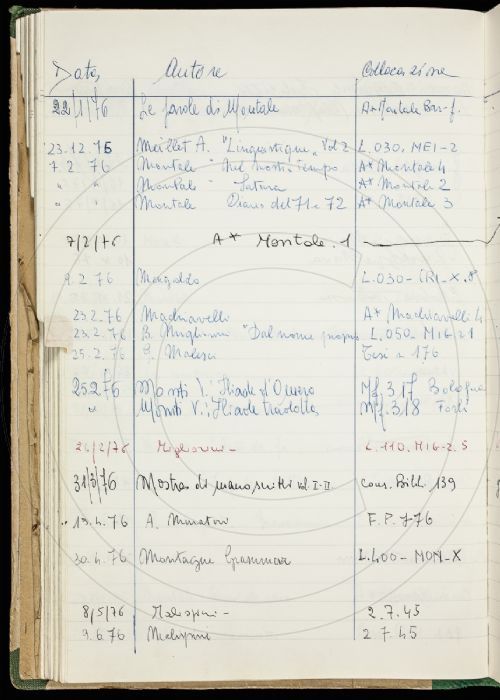 Data, Autore Collocazione
22/1/76 Le parole di Montale A* Montale Bon-f.
23.12.75 Meillet A. "Linguistique" Vol 2 L.030. MEI-2
7 2 76 Montale "Nel nostro tempo A* Montale 4
" " Montale Satura A* Montale 2
" " Montale Diario del 71 e 72 A* Montale 3
7/2/76 A* Montale. 1
9.2 76 Mengaldo L.030-
23.2.76 Machiavelli A* Machiavelli 4
23.2.76 B. Migliorini "Dal nome proprio L.050-MIG-21
25.2.76 G. Tesi n 176
25 2 76 Monti V.: Iliade d'Omero Mf. 317 Bologna
" Monti V.: Iliade tradotta Mf. 318 Forlì
26/2/76 Migliorini - L.110.MIG-2.5
31/3/76 Mostra di manoscritti vol. I-II cons. Bibl. 139
13.4.76 A. Muratori F.P. 776
30.4.76 Montague Grammar L.400-MON-X
8/5/76 Malispini - 2.7.45
9.6.76 Malispini 2 7 45